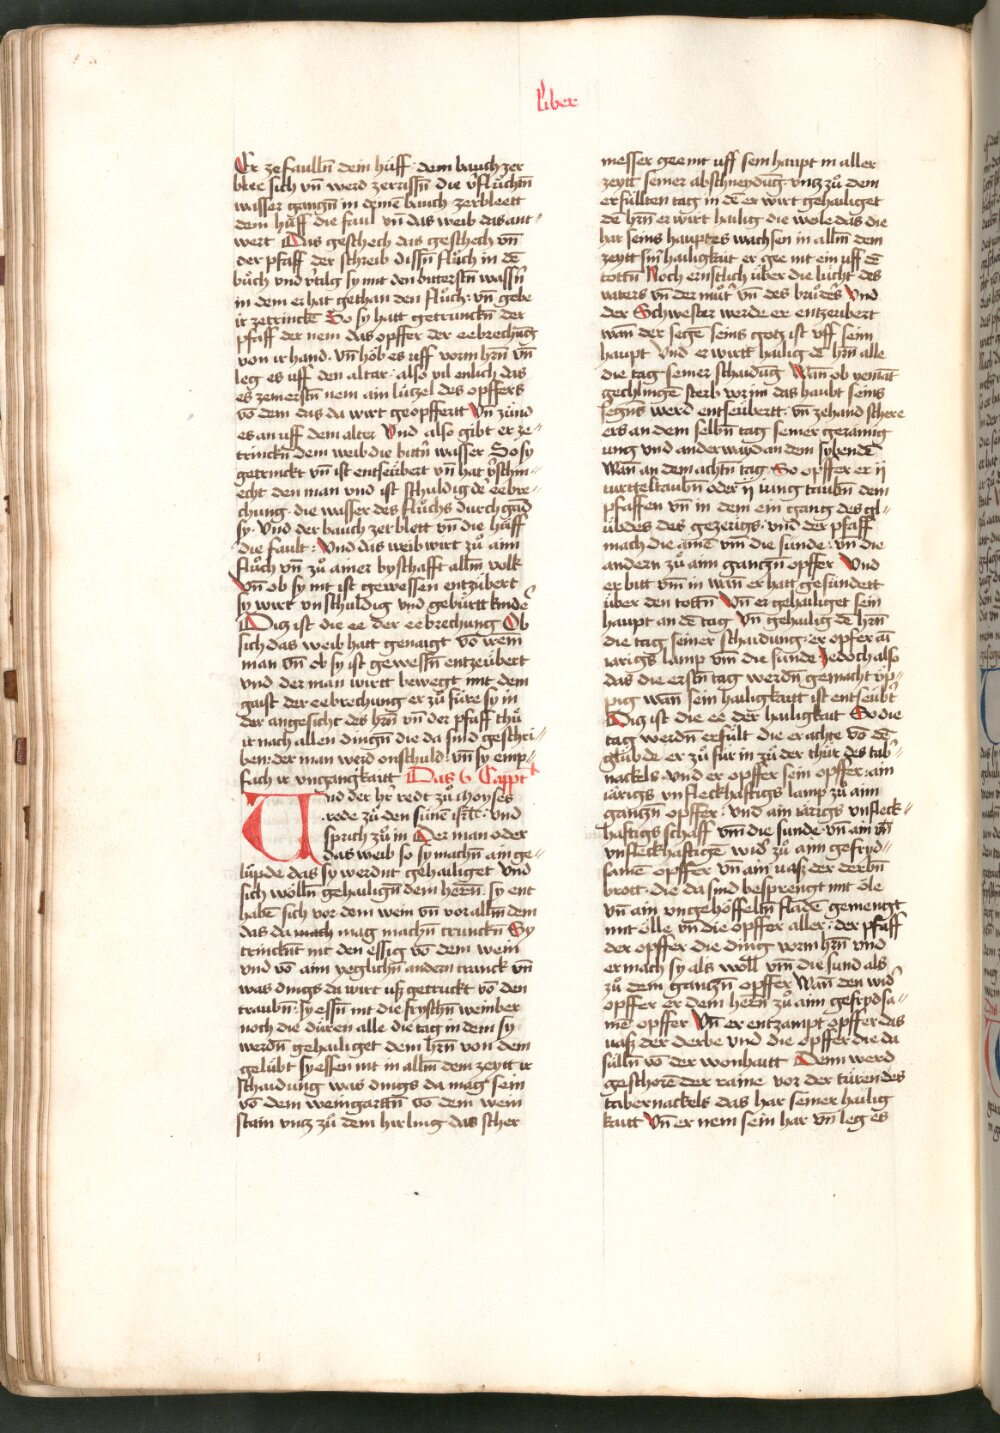 liber
Er ze faulln̄ dein hüff · dem bauch zer
blee sich vn̄ werd zerrissn̄ die v̓flůchtn̄
wasser gangn̄ in deinē bauch zerbleett
dein hüff die faul vn̄ das weib das ant〃
wert Das geschech das geschech vn̄
der pfaff der schreib dissn̄ flůch in dē
bůch vnd v̓tilg sy mit den bitterstn̄ wassr̄n
in dem er hat gethan den flůch : vn̄ gebe
ir zetrinckē So sy hatt getruncktn̄ der
pfaff der nem das opffer der eebrechūg
von ir hand · vn̄ höb es uff vorm hrn̄ vn̄
leg es uff den altar · also vil enlich das
es zem erstn̄ nem ain lützel des opffers
vō dem das da wirt geopffertt Vn̄ zünd
es an uff dem alter Vnd also gibt er ze〃
trinckn̄ dem weib die bittn̄ wasser So sy
getrinckt vn̄ ist entseübert vn̄ hat v̓schm〃
echt den man vnd ist schuldig d̓ eebre〃
chung · die wasser des flůchs durchgād
sy · Vnd der bauch zerblett vn̄ die hüff
die fault : Vnd das weib wirt zů aim
flůch vn̄ zů ainer byschafft allm̄ volk
Vn̄ ob sy nit ist gewessen entzübert
sy wirt vnschuldig vnd gebürtt kinde
Ditz ist die ee der eebrechung Ob
sich das weib hatt genaigt vō irem
man vn̄ ob sy ist gewessn̄ entzeübert
vnd der man wirtt bewegt mit dem
gaist der eebrechung er zů füre sy in
der angesicht des hrn̄ vn̄ der pfaff thů
ir nach allen dingn̄ die da sind geschri〃
ben : der man werd onschuld · vn̄ sy emp〃
fach ir vngangkaitt Das 6 Cappt̓l
Und der hr̓ redt zů moyses
rede zů den sünē isrl̄ · vnd
sprich zů in Der man oder
das weib so sy machn̄ ain ge〃
lüpde das sy werdnt gehailiget vnd
sich wölln̄ gehailign̄ dem herrn̄ : sy ent
habē sich vor dem wein vn̄ vor allm̄ dem
das da mach mag machn̄ trunckn̄ Sy
trincknt nit den essig vō dem wein
vnd vō aim yeglichn̄ andern tranck vn̄
was dings da wirt usz getruckt vō den
traubn̄ : sy essn̄ nit die fryschn̄ weinber
noch die düren alle die tag in dem sy
werdn̄ gehailiget dem hrn̄ von dem
gelübt sy essen nit in allm̄ dem zeytt ir
schaidung was dings da mag sein
vō dem weingarttn̄ vō dem wein
stain vntz zů dem hirling das scher
messer gee nit uff sein haupt in aller
zeytt seiner abschneydūg : vntz zů dem
erfüllten tag in dē er wirt gehailiget
dē hrn̄ er wirt hailig · die weile das die
har seins hauptes wachsen in allm̄ dem
zeytt sinr̄ hailigkait er gee nit ein uff dē
tottn̄ Noch ernstlich über die lücht des
vaters vn̄ der můt̓ vn̄ des brůders Vnd
der Schwester werde er entzeribert
wan̄ der sege seins gotz ist vff seim
haupt Vnd er wirtt hailig dē hrn̄ alle
die tag seiner schaidūg Wan̄ ob yemāt
gechlingē sterb vor im das haubt seins
segins werd entseübertt · vn̄ zehand schere
ers an dem selbn̄ tag seiner gerainig
ung vnd anderwayd an dem sybendē
Wan̄ an dem achtn̄ tag So opffer er ij
turtteltaubn̄ oder ij iung traubn̄ dem
pfaffen vn̄ in dem ein gang des gl〃
übdes des gezeügs · vnd der pfaff
mach die ainē vm̄ die sünde : vn̄ die
andern zů aim gantzn̄ opffer Vnd
er bitt vm̄ in wan̄ er hatt gesündett
über den tottn̄ Vn̄ er gehailiget sein
haupt an dē tag Vn̄ gehailig dē hrn̄
die tag seiner schaidung : er opfer aī
iārigs lamp vm̄ die sünde Jedoch also
das die erstn̄ tag werdn̄ gemacht üp〃
pig wan̄ sein hailigkaitt ist entseübt̓
Ditz ist die ee der hailigkait So die
tag werdn̄ erfült die er achte vō dē
glübde · er zů für in zů der thür des tab〃
nackels · vnd er opffer sein opffer · ain
iārigs vnfleckhaftigs lamp zů aim
gantzn̄ opffer · vnd ain iärigs vnfleck〃
haftigs schaff vm̄ die sunde · vn̄ ain vn̄
vnfleckhaftigē wid̓ zů aim gefryd〃
samē opffer vn̄ ain uasz der derbn̄
brott · die da sind besprengt mit öle
vn̄ ain vngehöffeltn̄ fladē gemengt
mit ölle vn̄ die opffer aller · der pfaff
der opffer die ding vorm hrn̄ vnd
er mach sy als woll vm̄ die sund als
zů dem gantzn̄ opffer Wan̄ den wid̓
opffer er dem herrn̄ zů aim gefrydsa〃
mē opffer Vn̄ er entzampt opffer das
uasz der derbe vnd die opffer die da
sülln̄ vō der wonhaitt Denn werd
geschorē der raine vor der türen des
tabernackels das har seiner hailig
kaitt Vn̄ er nem sein har vn̄ leg es